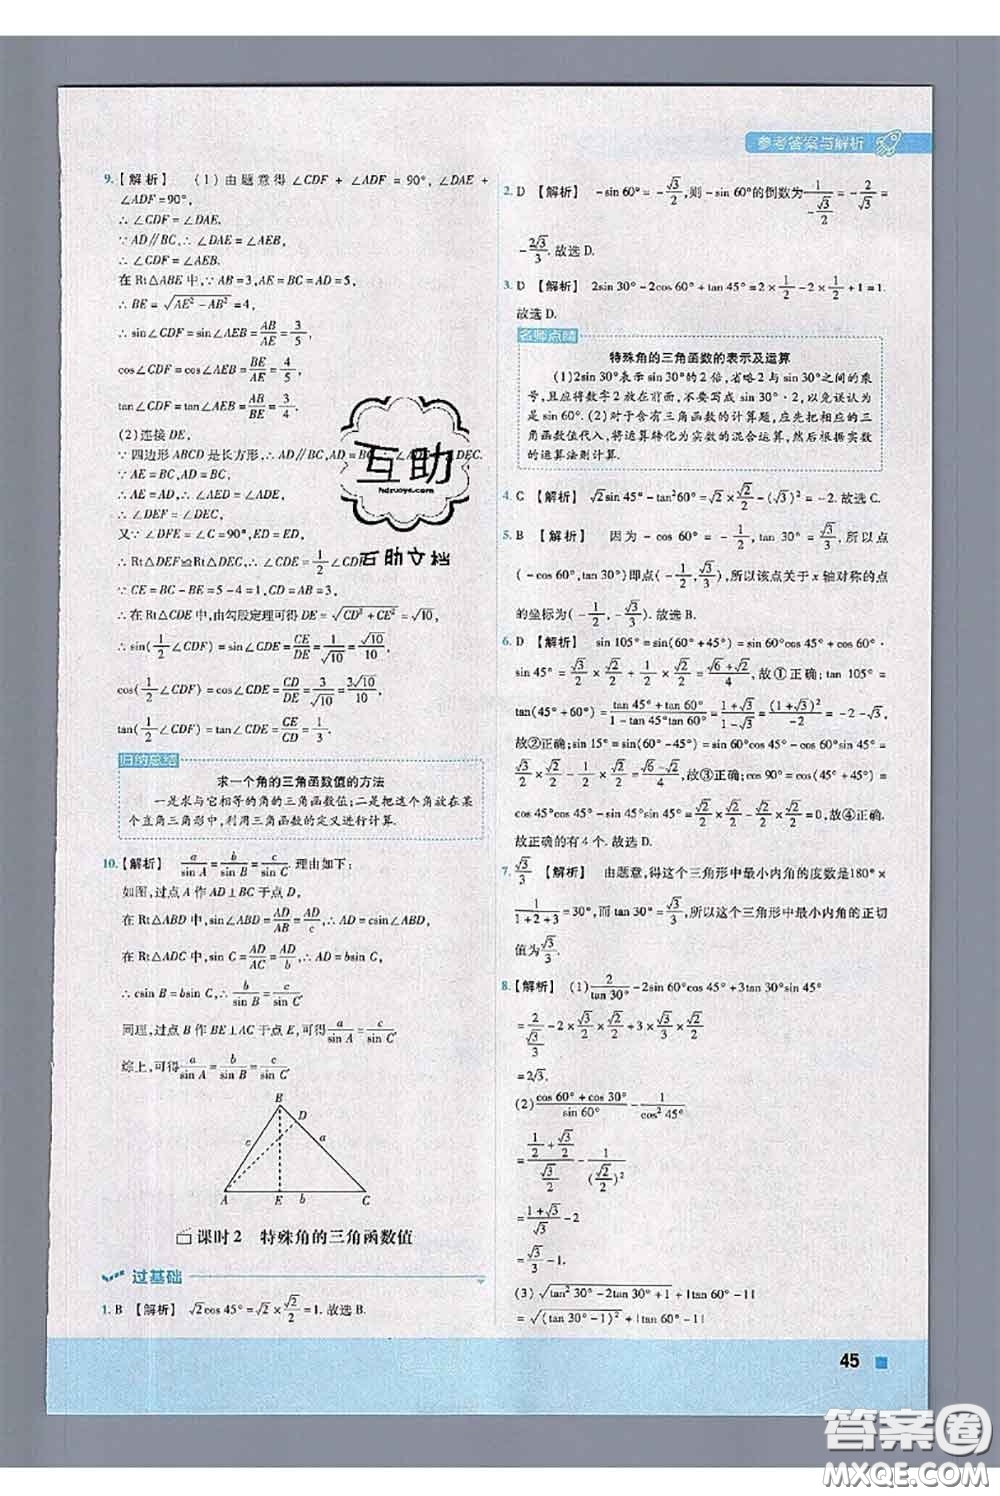 参考答案与解析
9.【解析】 (1)由题意得∠CDF + ∠ADF = 90°, ∠DAE +
∠ADF=90°,
∴ ∠CDF = ∠DAE.
∵ AD∥BC,∴ ∠DAE = ∠AEB,
∴ ∠CDF = ∠AEB.
在 Rt△ABE 中,∵ AB=3,AE=BC=AD=5,
∴ BE = √(AE²-AB²) =4,
∴ sin∠CDF = sin∠AEB = AB/AE = 3/5,
cos∠CDF = cos∠AEB = BE/AE = 4/5,
tan∠CDF = tan∠AEB = AB/BE = 3/4.
(2)连接 DE,
∵ 四边形 ABCD 是长方形,∴ AD∥BC,AD=BC,
∵ AE=BC,∴ AE=AD,
∴ ∠DEF = ∠DEC,
又∵ ∠DFE = ∠C=90°,ED=ED,
∴ Rt△DEF≌Rt△DEC,∴ ∠CDE = 1/2 ∠CDF.
∵ CE=BC-BE=5-4=1,CD=AB=3,
∴ 在 Rt△CDE 中,由勾股定理可得 DE = √(CD²+CE²) = √10,
∴ sin(1/2 ∠CDF) = sin∠CDE = CE/DE = 1/√10 = √10/10,
cos(1/2 ∠CDF) = cos∠CDE = CD/DE = 3/√10 = 3√10/10,
tan(1/2 ∠CDF) = tan∠CDE = CE/CD = 1/3.
归纳总结
求一个角的三角函数值的方法
一是求与它相等的角的三角函数值;二是把这个角放在某
个直角三角形中,利用三角函数的定义进行计算.
10.【解析】 a/sin A = b/sin B = c/sin C. 理由如下:
如图,过点 A 作 AD⊥BC 于点 D,
在 Rt△ABD 中,sin∠ABD = AD/AB = AD/c,∴ AD=csin∠ABD,
在 Rt△ADC 中,sin C = AD/AC = AD/b,∴ AD=bsin C,
∴ csin B = bsin C,∴ b/sin B = c/sin C.
同理,过点 B 作 BE⊥AC 于点 E,可得 a/sin A = c/sin C.
综上,可得 a/sin A = b/sin B = c/sin C.
B
D
c
a
A
E
b
C
课时2 特殊角的三角函数值
过基础
1. B 【解析】 √2cos 45° = √2 × √2/2 = 1. 故选 B.
2. D 【解析】 -sin 60° = -√3/2,则 -sin 60°的倒数为 1/(-√3/2) = -2/√3 =
-2√3/3. 故选 D.
3. D 【解析】 2sin 30°-2cos 60°+tan 45°=2×1/2-2×1/2+1=1.
故选 D.
名师点睛
特殊角的三角函数的表示及运算
(1)2sin 30°表示 sin 30°的 2 倍,省略 2 与 sin 30°之间的乘
号,且应将数字 2 放在前面,不要写成 sin 30°·2,以免误认为
是 sin 60°. (2)对于含有三角函数的计算题,应先把相应的三
角函数值代入,将运算转化为实数的混合运算,然后根据实数
的运算法则计算.
4. C 【解析】 √2sin 45°-tan²60°=√2×√2/2-(√3)²=-2. 故选 C.
5. B 【解析】 因为 -cos 60° = -1/2, tan 30° = √3/3, 所以点
(-cos 60°,tan 30°)即点(-1/2,√3/3),所以该点关于 x 轴对称的点
的坐标为(-1/2,-√3/3). 故选 B.
6. D 【解析】 sin 105°=sin(60°+45°)=sin 60°cos 45°+cos 60°·
sin 45° = √3/2 × √2/2 + 1/2 × √2/2 = (√6+√2)/4,故①正确;tan 105° =
tan(45°+60°) = (tan 45°+tan 60°)/(1-tan 45°tan 60°) = (1+√3)/(1-√3) = (1+√3)²/-2 = -2-√3,
故②正确;sin 15°=sin(60°-45°)=sin 60°cos 45°-cos 60°sin 45°
= √3/2 × √2/2 - 1/2 × √2/2 = (√6-√2)/4,故③正确;cos 90°=cos(45°+45°)=
cos 45°cos 45°-sin 45°sin 45°= √2/2 × √2/2 - √2/2 × √2/2 =0,故④正确.
故正确的有 4 个. 故选 D.
7. √3/3 【解析】 由题意,得这个三角形中最小内角的度数是180°×
1/(1+2+3) =30°,而 tan 30° = √3/3,所以这个三角形中最小内角的正切
值为 √3/3.
8.【解析】 (1) 2/tan 30° -2sin 60°cos 45°+3tan 30°sin 45°
= 2/(√3/3) - 2×√3/2×√2/2 + 3×√3/3×√2/2
=2√3.
(2) (cos 60°+cos 30°)/sin 60° - 1/cos²45°
= (1/2+√3/2)/(√3/2) - 1/(√2/2)²
= (1+√3)/√3 - 2
= √3/3 - 1.
(3) √(tan²30°-2tan 30°+1) + |tan 60°-1|
= √((tan 30°-1)²) + |tan 60°-1|
45
互助
hdzuoye.com
互助文档
答案圈
MXQE.COM